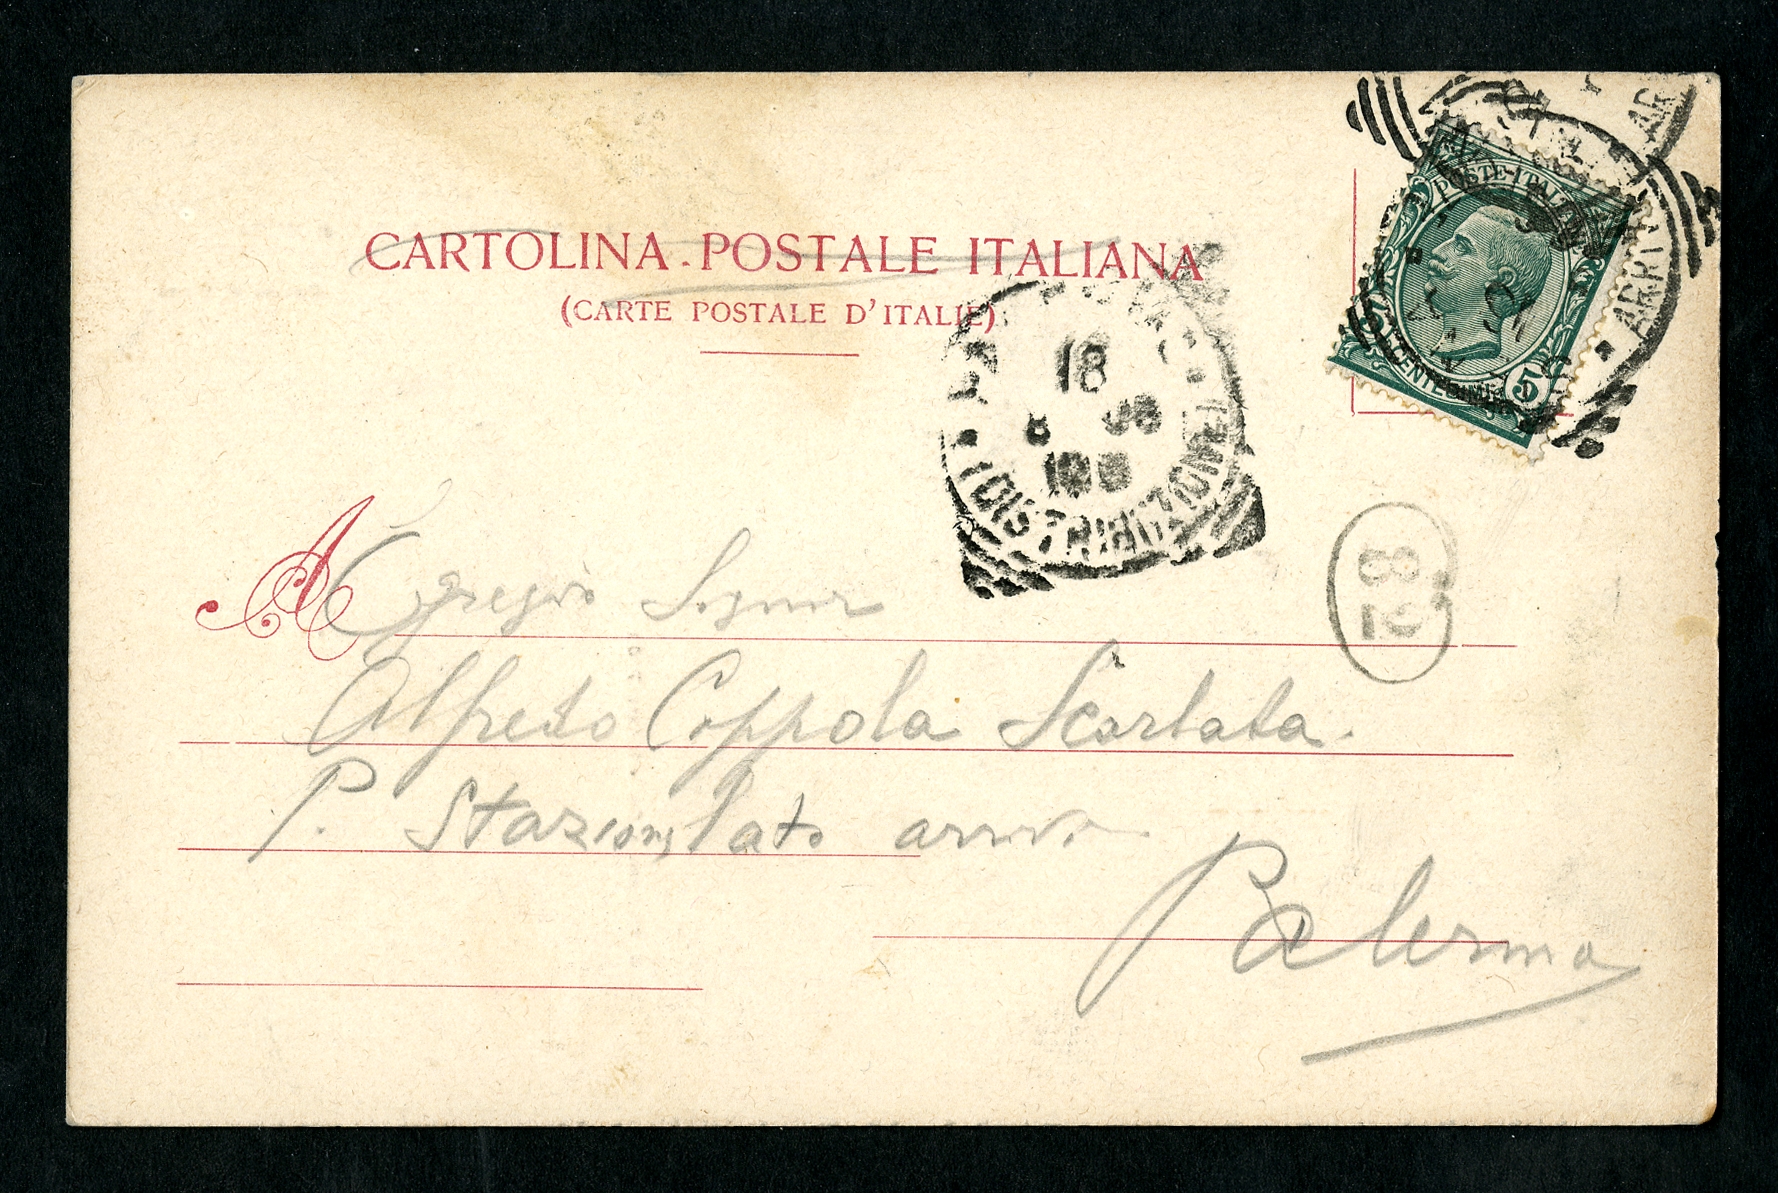 CARTOLINA POSTALE ITALIANA
(CARTE POSTALE D'ITALIE)
POSTE ITALIANE
CENTESIMI 5
ARRIVI
18
8 08
(DISTRIBUZIONE)
82
A
Egregio Signor
Alfredo Coppola Scarlata.
P. Stazione, lato arrivi
Palermo